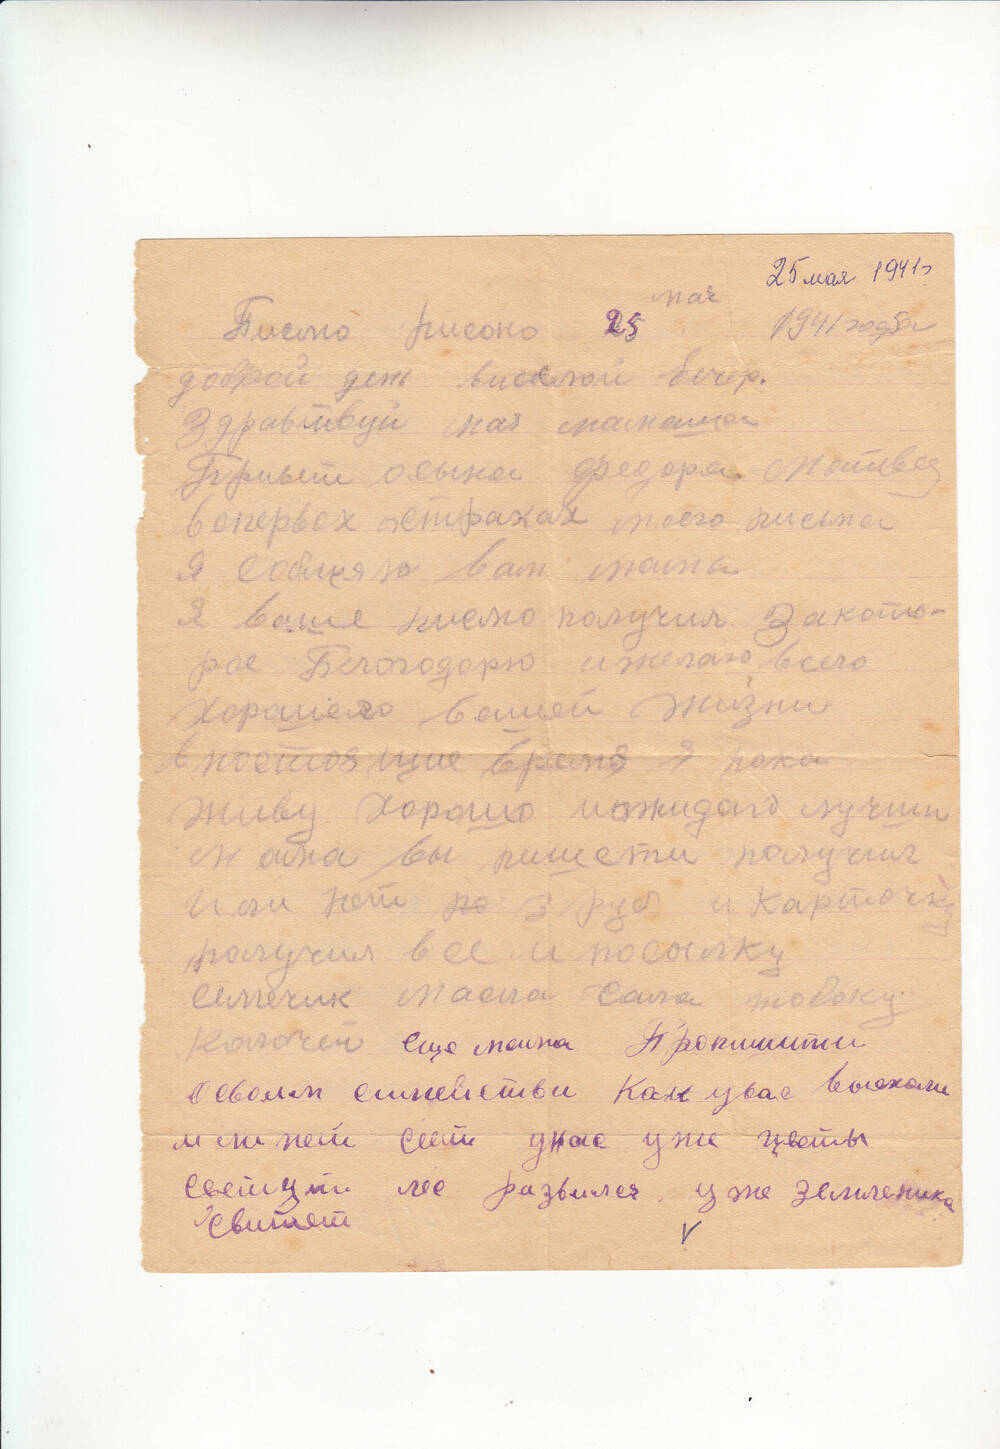 25 мая 1941 г
Писмо писоно 25 мая 1941 года
доброй день виселой вечер.
Здравтвуй моя мамаша
Привет осына федора Матвее
вопервох острахах моего писма
Я собщяю вам мама
Я ваше писмо получил Закото-
рое Благодорю ижелаю всего
хорошего вашей жизни
внастоящие время я пока
живу хорошо иожидаю лучши
мама вы пишети получил
или нет по 3 руб и карточку
получил все и посылку
семечик масла сала тобоку
колачей еще мама Пропишити
освоем симействи как увас выехали
или нет сеит унас уже цветы
светути лес развился уже земленика
свитает